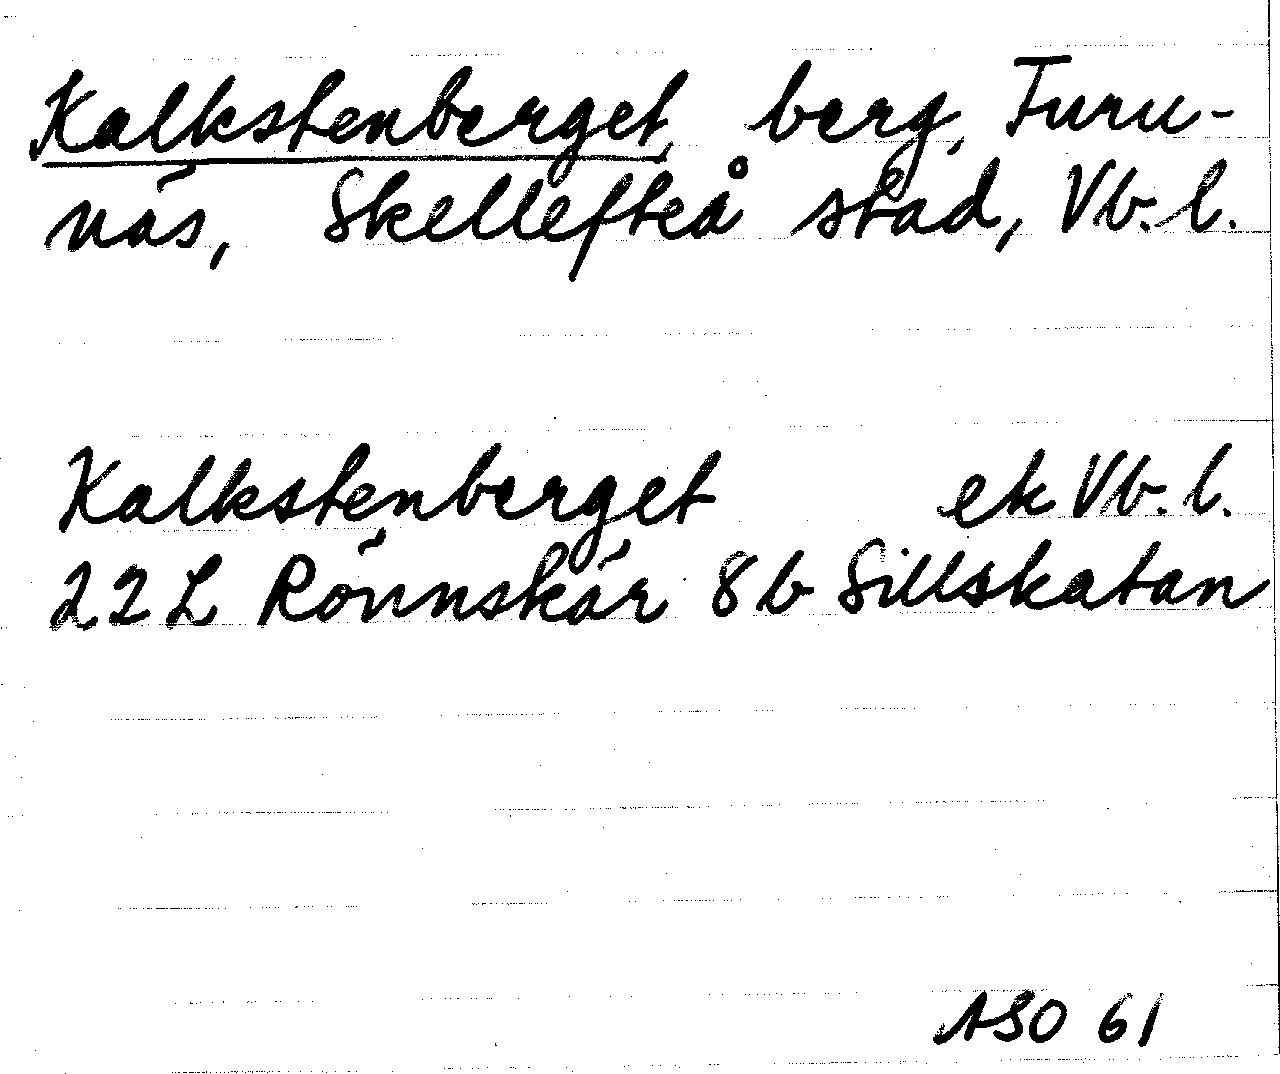 Kalkstenberget, berg, Furu-
näs, Skellefteå stad, Vb. l.
Kalkstenberget ek Vb. l.
22 L Rönnskär 8b Sillskatan
ASO 61